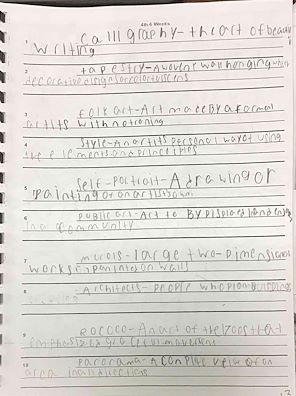 4th 6 Weeks
1 Calligraphy-the art of beauti
writing
2 tapestry-A wovene wall hanging which
decorative designs or colorful scens
3 folk art-Art made By a formal
artits with no traning
4 Style-An artits personal way of using
the elements and principles
5 Self-Portrait-A drawing or
Painting of an artists own
6 Public art-Art to By Displaced and enjoy
in a community
7 murals-large two-Dimensional
works painted on walls
8 Architects-People who plan Buildings
9 Rococo-An art of the 1700s that
emphasizes graceful movement
10 Panorama-A Complete veiw of an
area in all directions